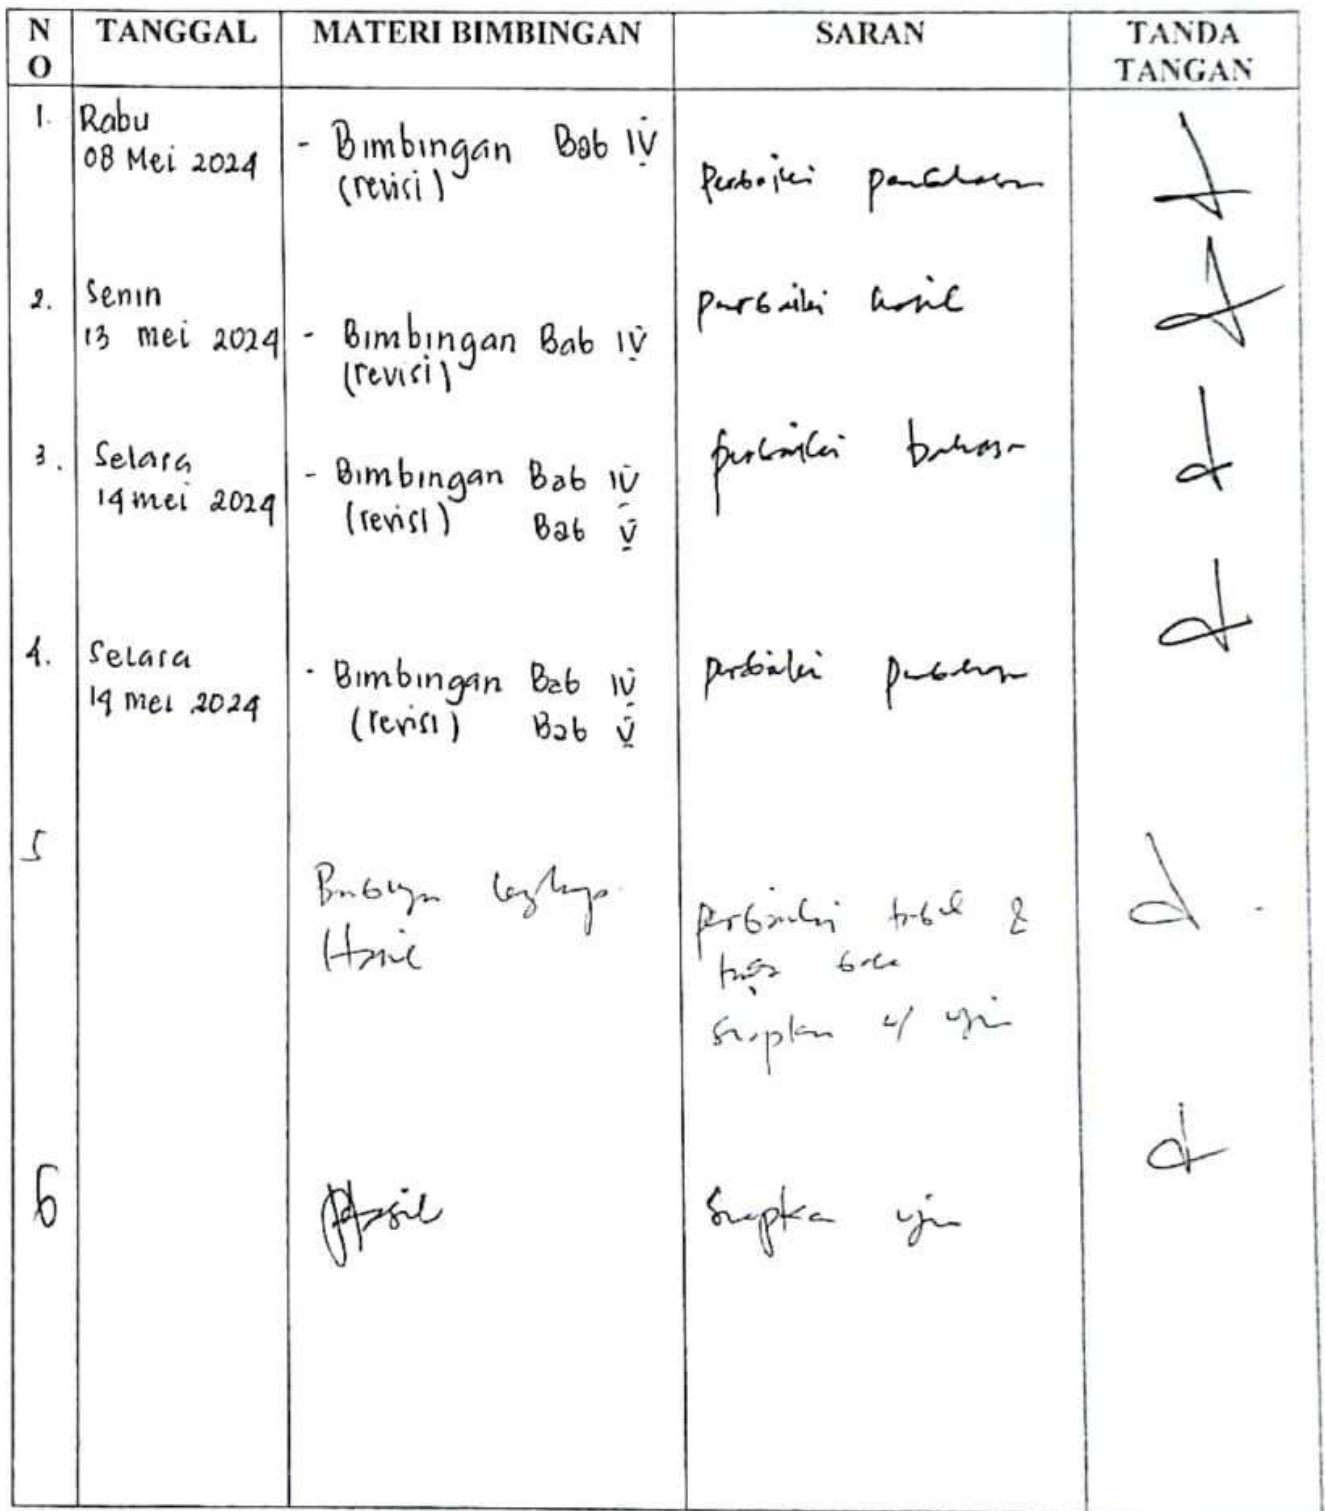 N O TANGGAL MATERI BIMBINGAN SARAN TANDA TANGAN
1. Rabu
08 Mei 2024
- Bimbingan Bab IV
(revisi)
Perbaiki pembahasan
2. Senin
13 mei 2024
- Bimbingan Bab IV
(revisi)
perbaiki hasil
3. Selasa
14 mei 2024
- Bimbingan Bab IV
(revisi) Bab V
perbaiki bahasa
4. Selasa
14 mei 2024
- Bimbingan Bab IV
(revisi) Bab V
perbaiki
5
lengkap
Hasil
perbaiki tabel &
siapkan u/ ujian
6
Hasil
Siapkan ujian